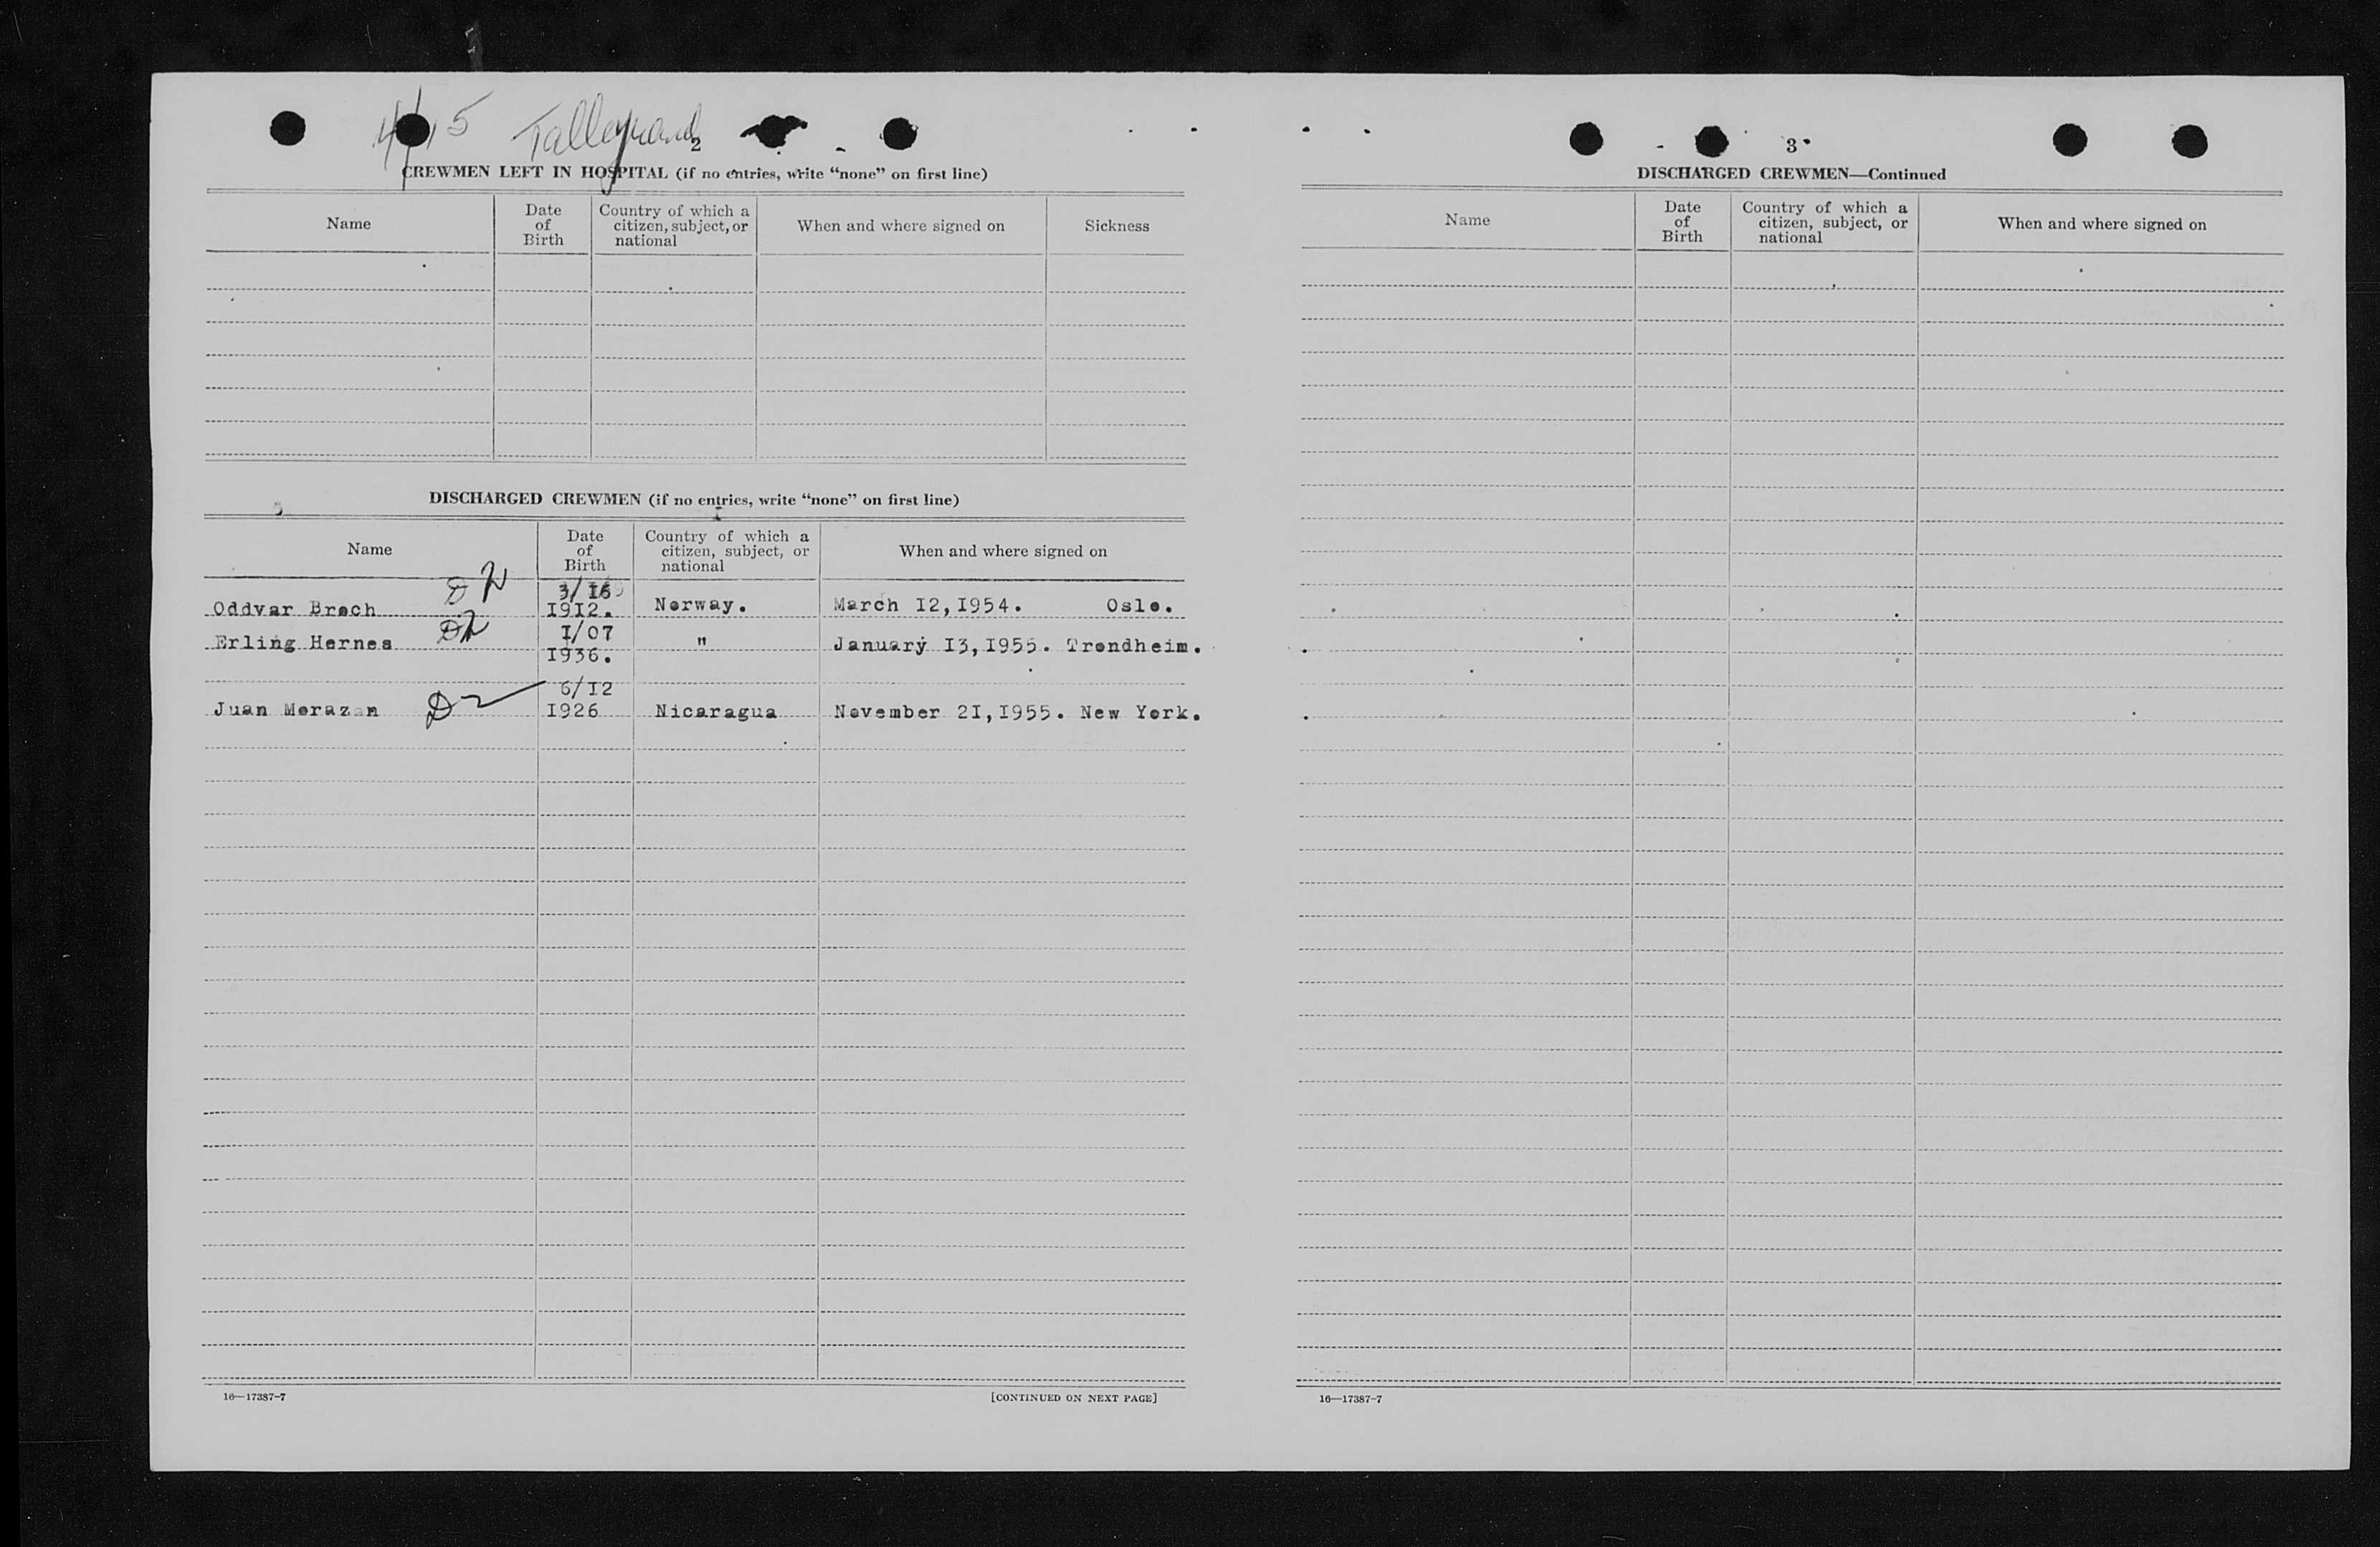 4/15 Talleyrand
2
CREWMEN LEFT IN HOSPITAL (if no entries, write “none” on first line)
Name
Date of Birth
Country of which a citizen, subject, or national
When and where signed on
Sickness
DISCHARGED CREWMEN (if no entries, write “none” on first line)
Name
Date of Birth
Country of which a citizen, subject, or national
When and where signed on
Oddvar Broch D2 3/16 1912. Norway. March 12,1954. Oslo.
Erling Hernes D2 1/07 1936. " January 13,1955. Trondheim.
Juan Morazan D2 6/12 1926 Nicaragua November 21,1955. New York.
16—17387-7
[CONTINUED ON NEXT PAGE]
3
DISCHARGED CREWMEN—Continued
Name
Date of Birth
Country of which a citizen, subject, or national
When and where signed on
16—17387-7